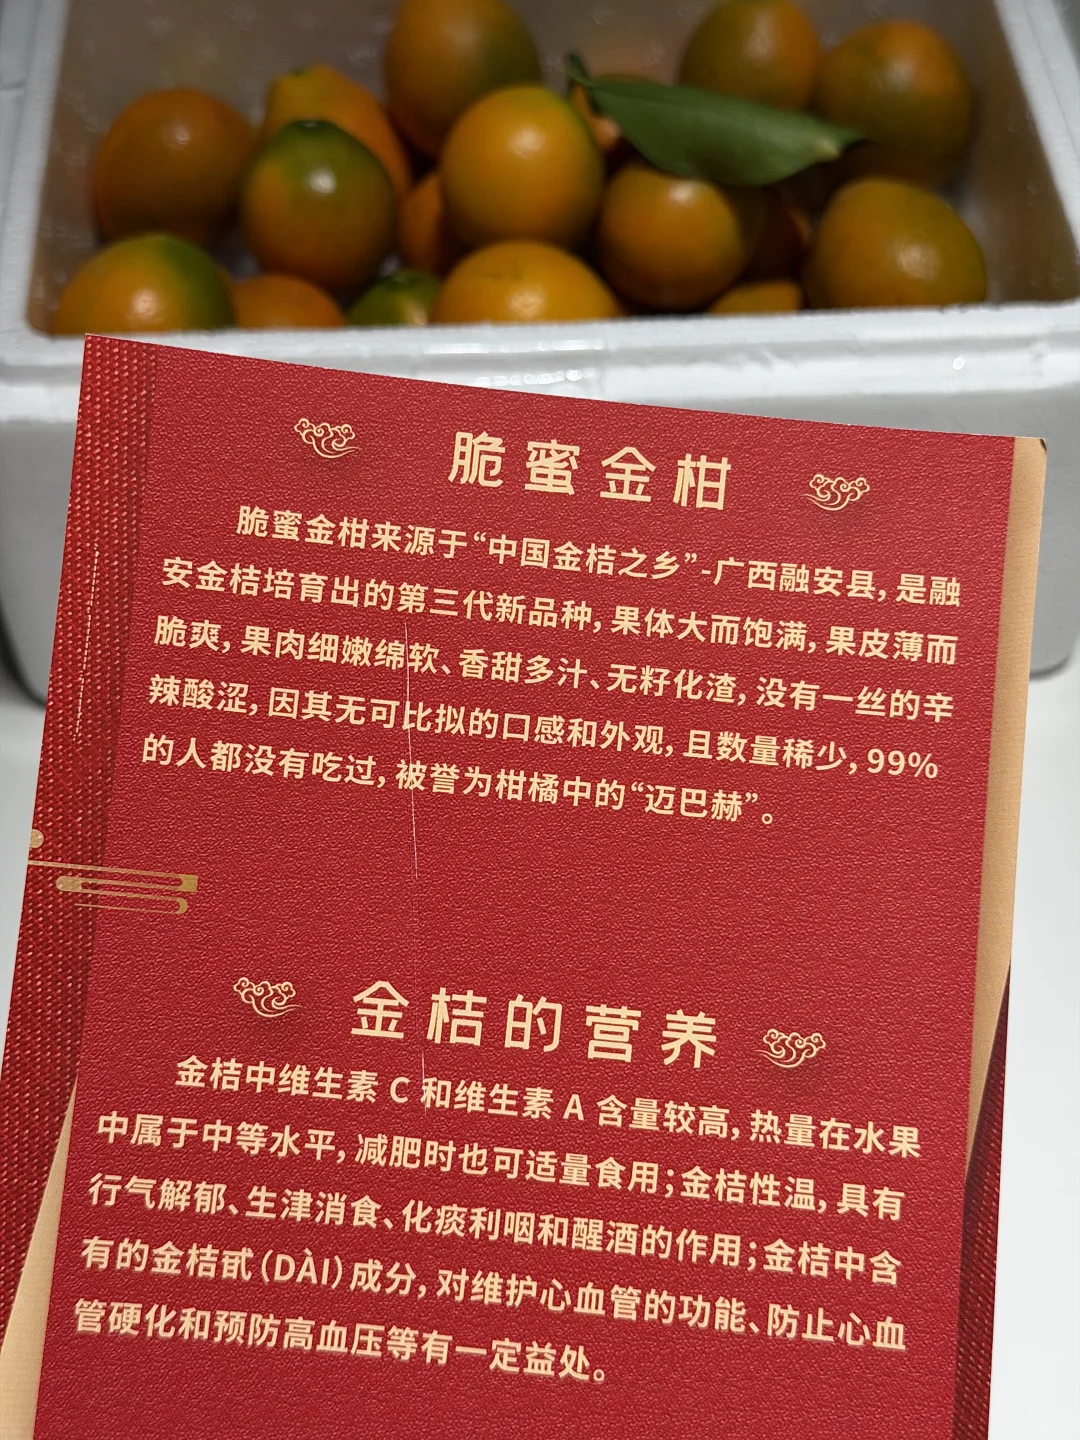 脆蜜金柑
脆蜜金柑来源于“中国金桔之乡”-广西融安县，是融
安金桔培育出的第三代新品种，果体大而饱满，果皮薄而
脆爽，果肉细嫩绵软、香甜多汁、无籽化渣，没有一丝的辛
辣酸涩，因其无可比拟的口感和外观，且数量稀少，99%
的人都没有吃过，被誉为柑橘中的“迈巴赫”。
金桔的营养
金桔中维生素 C 和维生素 A 含量较高，热量在水果
中属于中等水平，减肥时也可适量食用；金桔性温，具有
行气解郁、生津消食、化痰利咽和醒酒的作用；金桔中含
有的金桔甙（DÀI）成分，对维护心血管的功能、防止心血
管硬化和预防高血压等有一定益处。